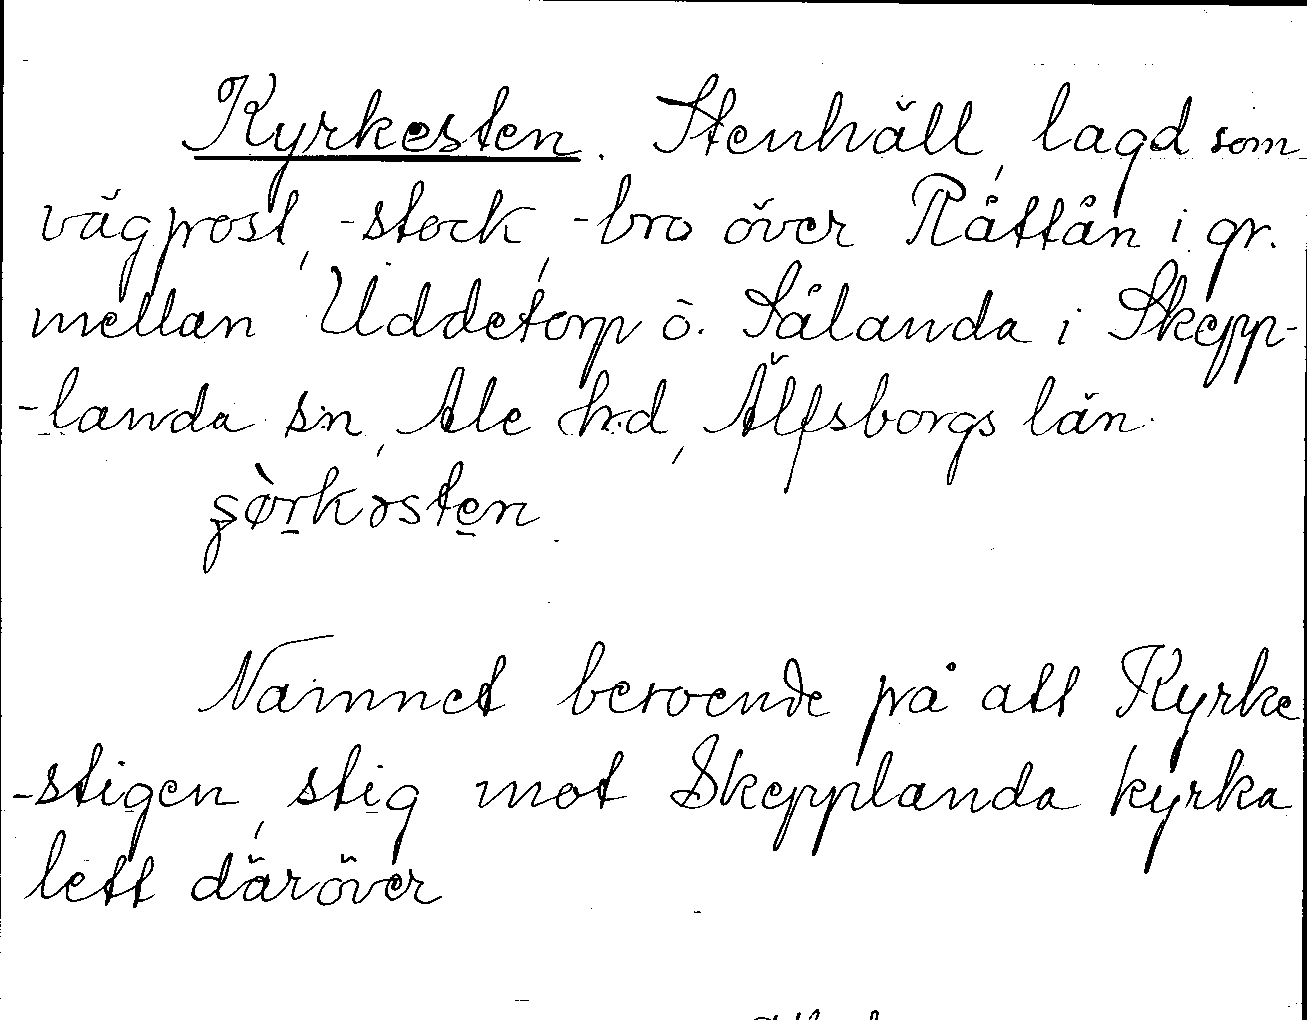 Kyrkesten. Stenhäll, lagd som
vägprost, -stock, -bro över Råttån i gr.
mellan Uddetorp o. Sålanda i Skepp-
-landa sn, Ale hd, Älfsborgs län.
Namnet beroende på att Kyrke
-stigen, stig mot Skepplanda kyrka
lett däröver